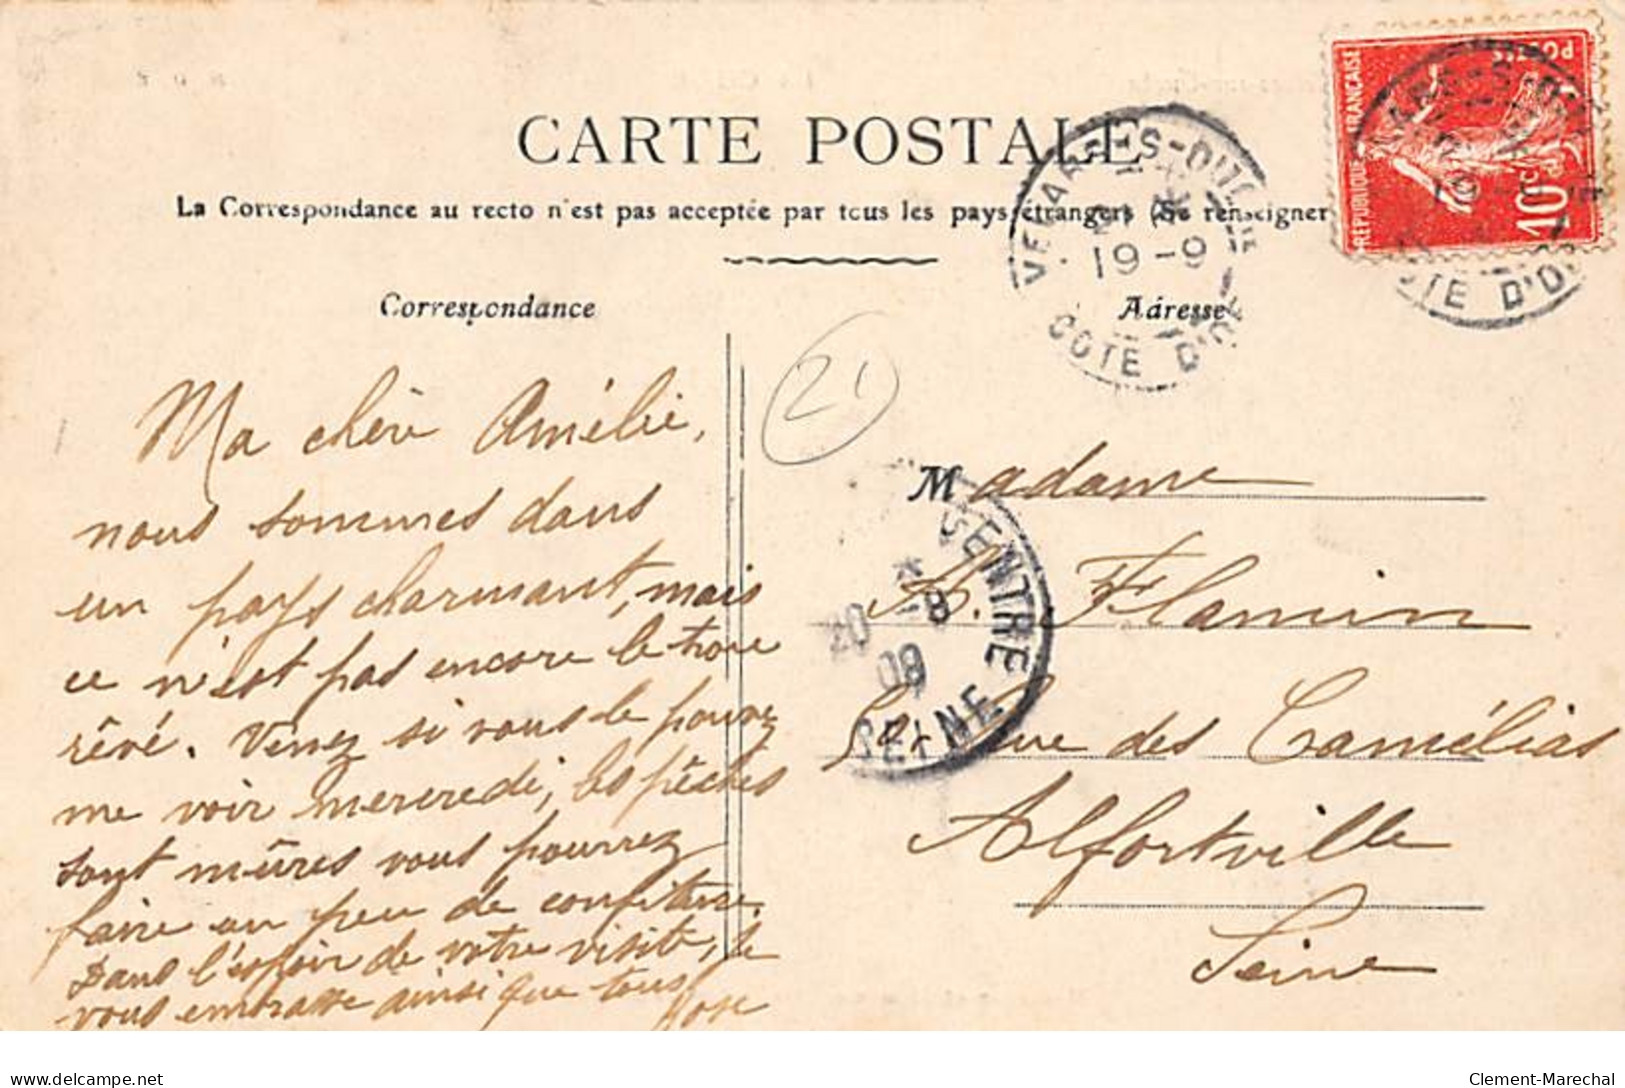 CARTE POSTALE
La Correspondance au recto n'est pas acceptée par tous les pays étrangers (Se renseigner
Correspondance
Adresse
19-9
COTE D'OR
POSTES
REPUBLIQUE FRANÇAISE
10c
COTE D'OR
21
Ma chère Amélie,
nous sommes dans
un pays charmant, mais
ce n'est pas encore le trou
rêvé. Venez si vous le pouvez
me voir mercredi, les pêches
sont mûres vous pourrez
faire un peu de confiture
Dans l'espoir de votre visite, je
vous embrasse ainsi que tous
Rose
Madame
A. Flamin
Rue des Camélias
Alfortville
Seine
CENTRE
20 -9
09
SEINE
delcampe.net
Clement-Marechal